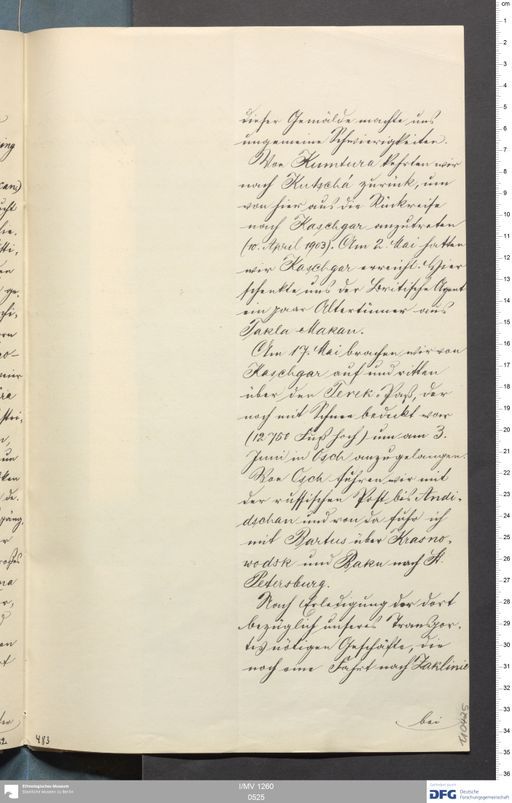 dieser Gemälde machte uns
ungemeine Schwierigkeiten.
Von Kumtura kehrten wir
nach Kutschá zurück, um
von hier aus die Rückreise
nach Kaschgar anzutreten
(10. April 1903). Am 2. Mai hatten
wir Kaschgar erreicht. Hier
schenkte uns der Britische Agent
ein paar Altertümer aus
Takla Makan.
Am 17. Mai brachen wir von
Kaschgar auf und ritten
über den Terek-Paß, der
noch mit Schnee bedeckt war
(12 750 Fuß hoch) um am 3.
Juni in Osch anzugelangen.
Von Osch fuhren wir mit
der russischen Post bis Andi-
dschan und von da fuhr ich
mit Bartus über Krasno-
wodsk und Baku nach St.
Petersburg.
Nach Erledigung der dort
bezüglich unseres Transpor-
tes nötigen Geschäfte, die
noch eine Fahrt nach Zaklinie
bei
483
I/MV 1260
0525
Ethnologisches Museum
Staatliche Museen zu Berlin
DFG Deutsche
Forschungsgemeinschaft